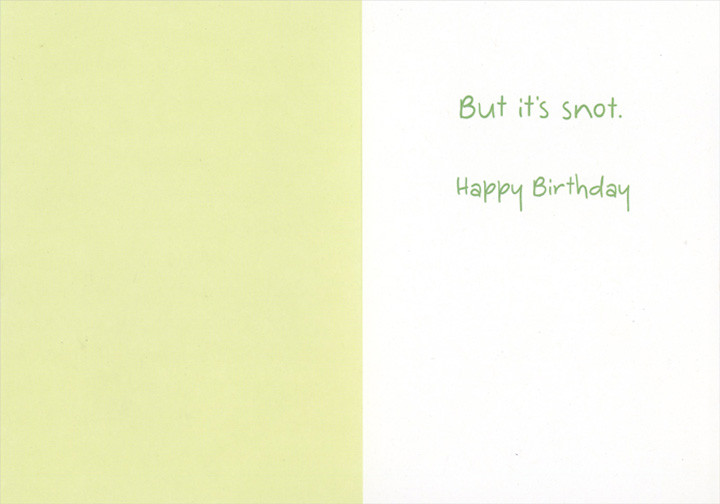 But it's snot.
Happy Birthday